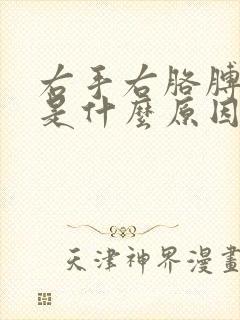 右手右胳膊
是什麼原因
天津神界漫畫